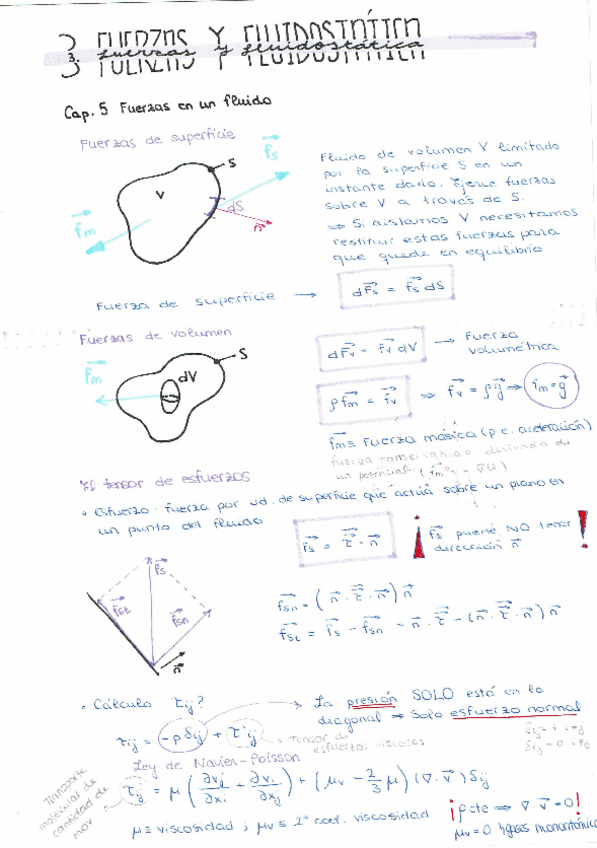 3. FUERZAS Y FLUIDOSTÁTICA
fuerzas y fluidostática
Cap. 5 Fuerzas en un fluido
Fuerzas de superficie
S
V
dS
f⃗s
f⃗m
n⃗
Fluido de volumen V limitado
por la superficie S en un
instante dado. Ejerce fuerzas
sobre V a través de S.
⇒ Si aislamos V necesitamos
restituir estas fuerzas para
que quede en equilibrio
Fuerza de superficie → dF⃗s = f⃗s dS
Fuerzas de volumen
f⃗m
dV
S
dF⃗v = f⃗v dV → Fuerza
volumétrica
ρf⃗m = f⃗v ⇒ f⃗v = ρg⃗ ⇒ f⃗m = g⃗
f⃗m ≡ Fuerza másica (p.e. aceleración)
fuerza conservativa o derivada de
un potencial: (f⃗m = -∇U)
El tensor de esfuerzos
• Esfuerzo: fuerza por ud. de superficie que actúa sobre un plano en
un punto del fluido
f⃗s = τ⃗ · n⃗
¡ f⃗s puede NO tener !
dirección n⃗
f⃗s
f⃗st
f⃗sn
n⃗
f⃗sn = (n⃗ · τ⃗ · n⃗) n⃗
f⃗st = f⃗s - f⃗sn = n⃗ · τ⃗ - (n⃗ · τ⃗ · n⃗) n⃗
• Cálculo τij?
La presión SOLO está en la
diagonal ⇒ Solo esfuerzo normal
τij = -pδij + τ'ij → Tensor de
esfuerzos viscosos
δij = 1 i=j
δij = 0 i≠j
Ley de Navier-Poisson
Transporte
molecular de
cantidad de
mov
τ'ij = μ(∂vj/∂xi + ∂vi/∂xj) + (μv - 2/3 μ)(∇·v⃗)δij
μ ≡ viscosidad ; μv ≡ 2º coef. viscosidad
¡ρcte ⇒ ∇·v⃗ = 0!
μv = 0 gases monoatómicos